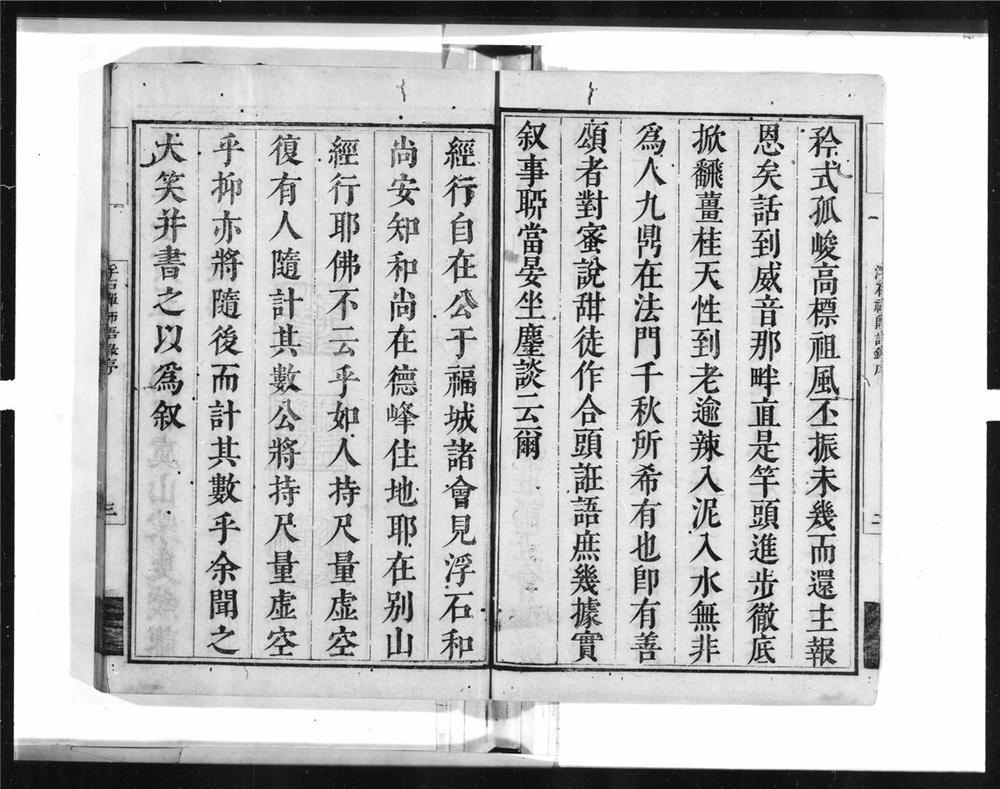 矜式孤峻高標祖風丕振未幾而還主報
恩矣話到威音那畔直是竿頭進步徹底
掀飜薑桂天性到老逾辣入泥入水無非
為人九鼎在法門千秋所希有也卽有善
頌者對蜜說甜徒作合頭誑語庶幾據實
叙事聊當晏坐麈談云爾
二
經行自在公于福城諸會見浮石和
尚安知和尚在德峰住地耶在别山
經行耶佛不云乎如人持尺量虛空
復有人隨計其數公將持尺量虛空
乎抑亦將隨後而計其數乎余聞之
大笑并書之以為叙
浮石禪師語錄序
三